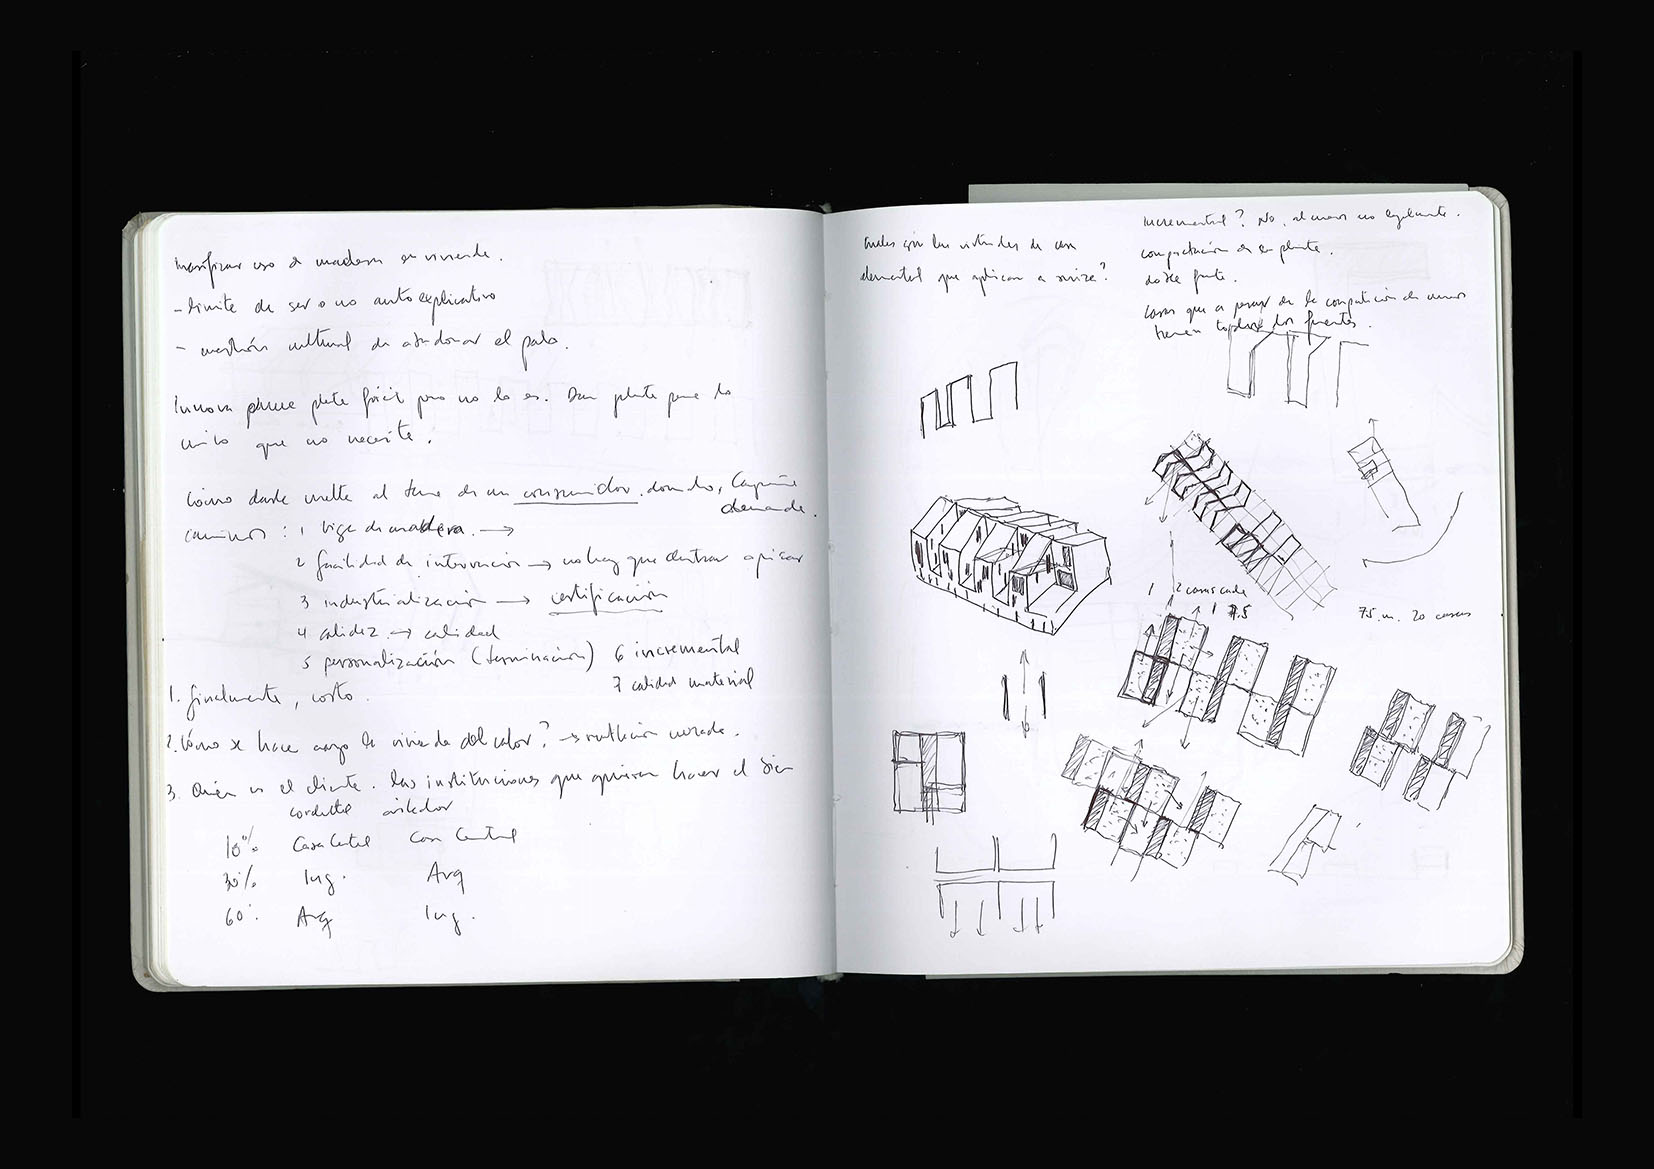 Masificar uso de madera en vivienda.
- límite de ser o no autoexplicativo
- cuestión cultural de abandonar el palo.
Innova parece plata fácil pero no lo es. Dan plata para lo
único que no necesito.
Cómo darle vuelta al tema de un consumidor
demanda.
caminos: 1 viga de madera →
2 facilidad de intervención → no hay que entrar a picar
3 industrialización → certificación
4 calidez → calidad
5 personalización (terminación) 6 incremental
7 calidad material
1. finalmente, costo.
2. Cómo se hace cargo la vivienda del calor? →
3. Quién es el cliente. las instituciones que quieran hacer el bien
10% Casa Central Casa Central
30% Ing. Arq
60% Arq Ing.
Cuáles son las virtudes de casa
elemental que aplican a suiza?
Incremental? No, al menos no
compactación es en planta.
doble frente.
casas que a pesar de la compactación de muros
tienen dos frentes.
1 2 casas cada
1 7.5
75 m. 20 casas